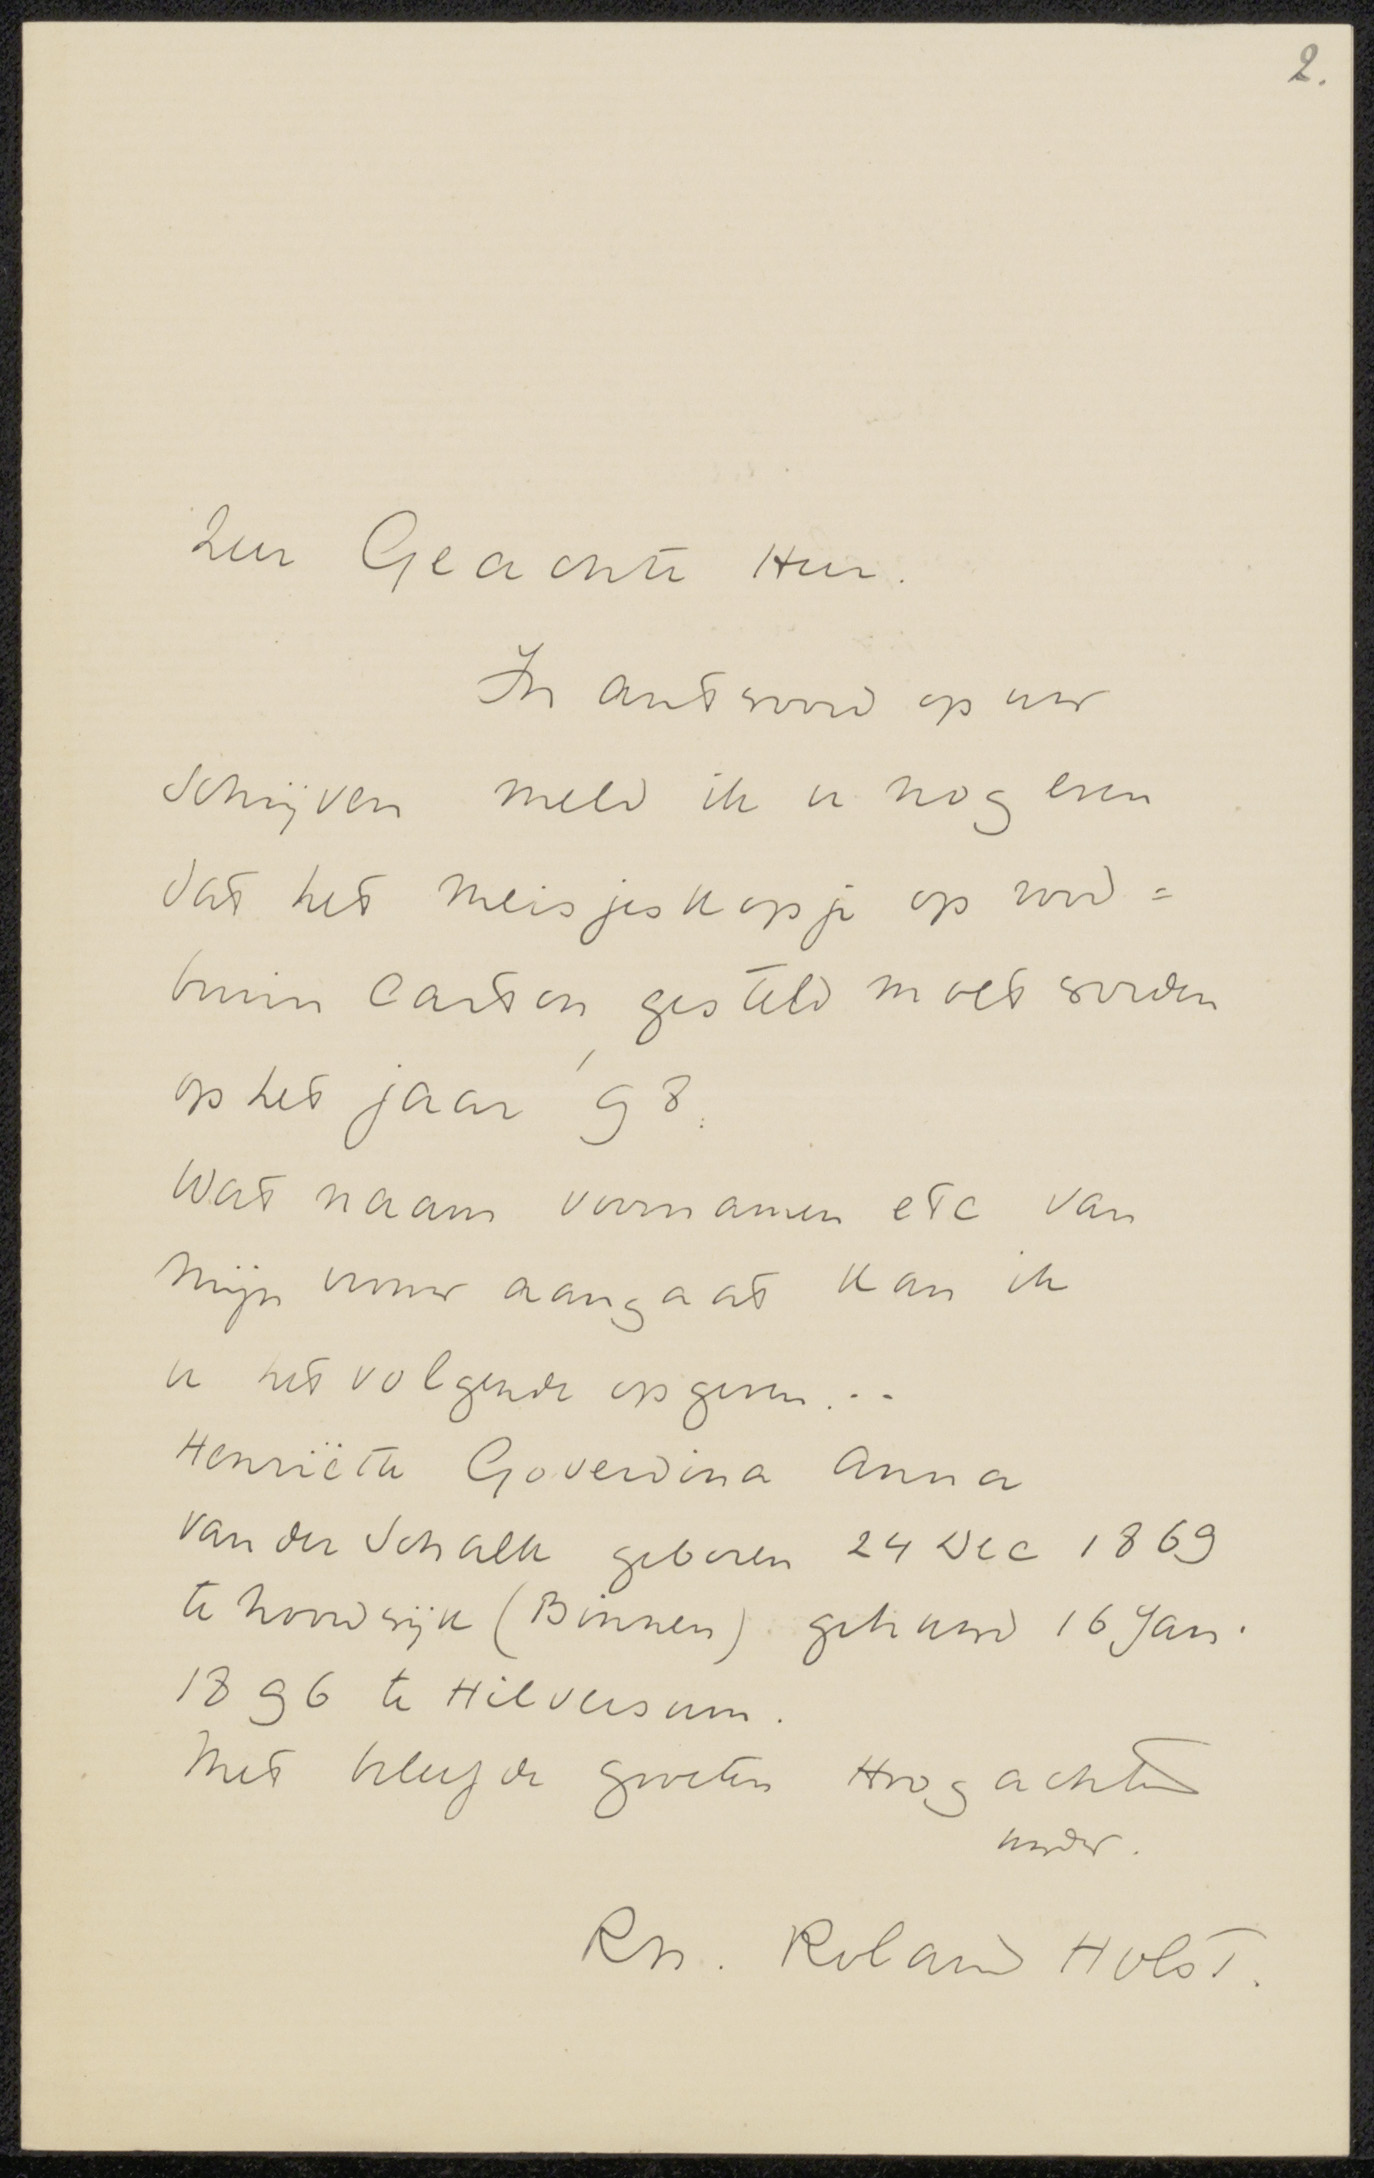 2.
Zeer Geachte Heer.
In antwoord op uw
schrijven meld ik u nog even
dat het meisjeskopje op rood =
bruin carton gesteld moet worden
op het jaar '98.
Wat naam voornamen etc van
mijn vrouw aangaat kan ik
u het volgende opgeven...
Henriëtte Goverdina Anna
van der Schalk geboren 24 Dec 1869
te Noordwijk (Binnen) gehuwd 16 Jan.
1896 te Hilversum.
Met beleefde groeten Hoogachtend
uwdw.
RN. Roland Holst.